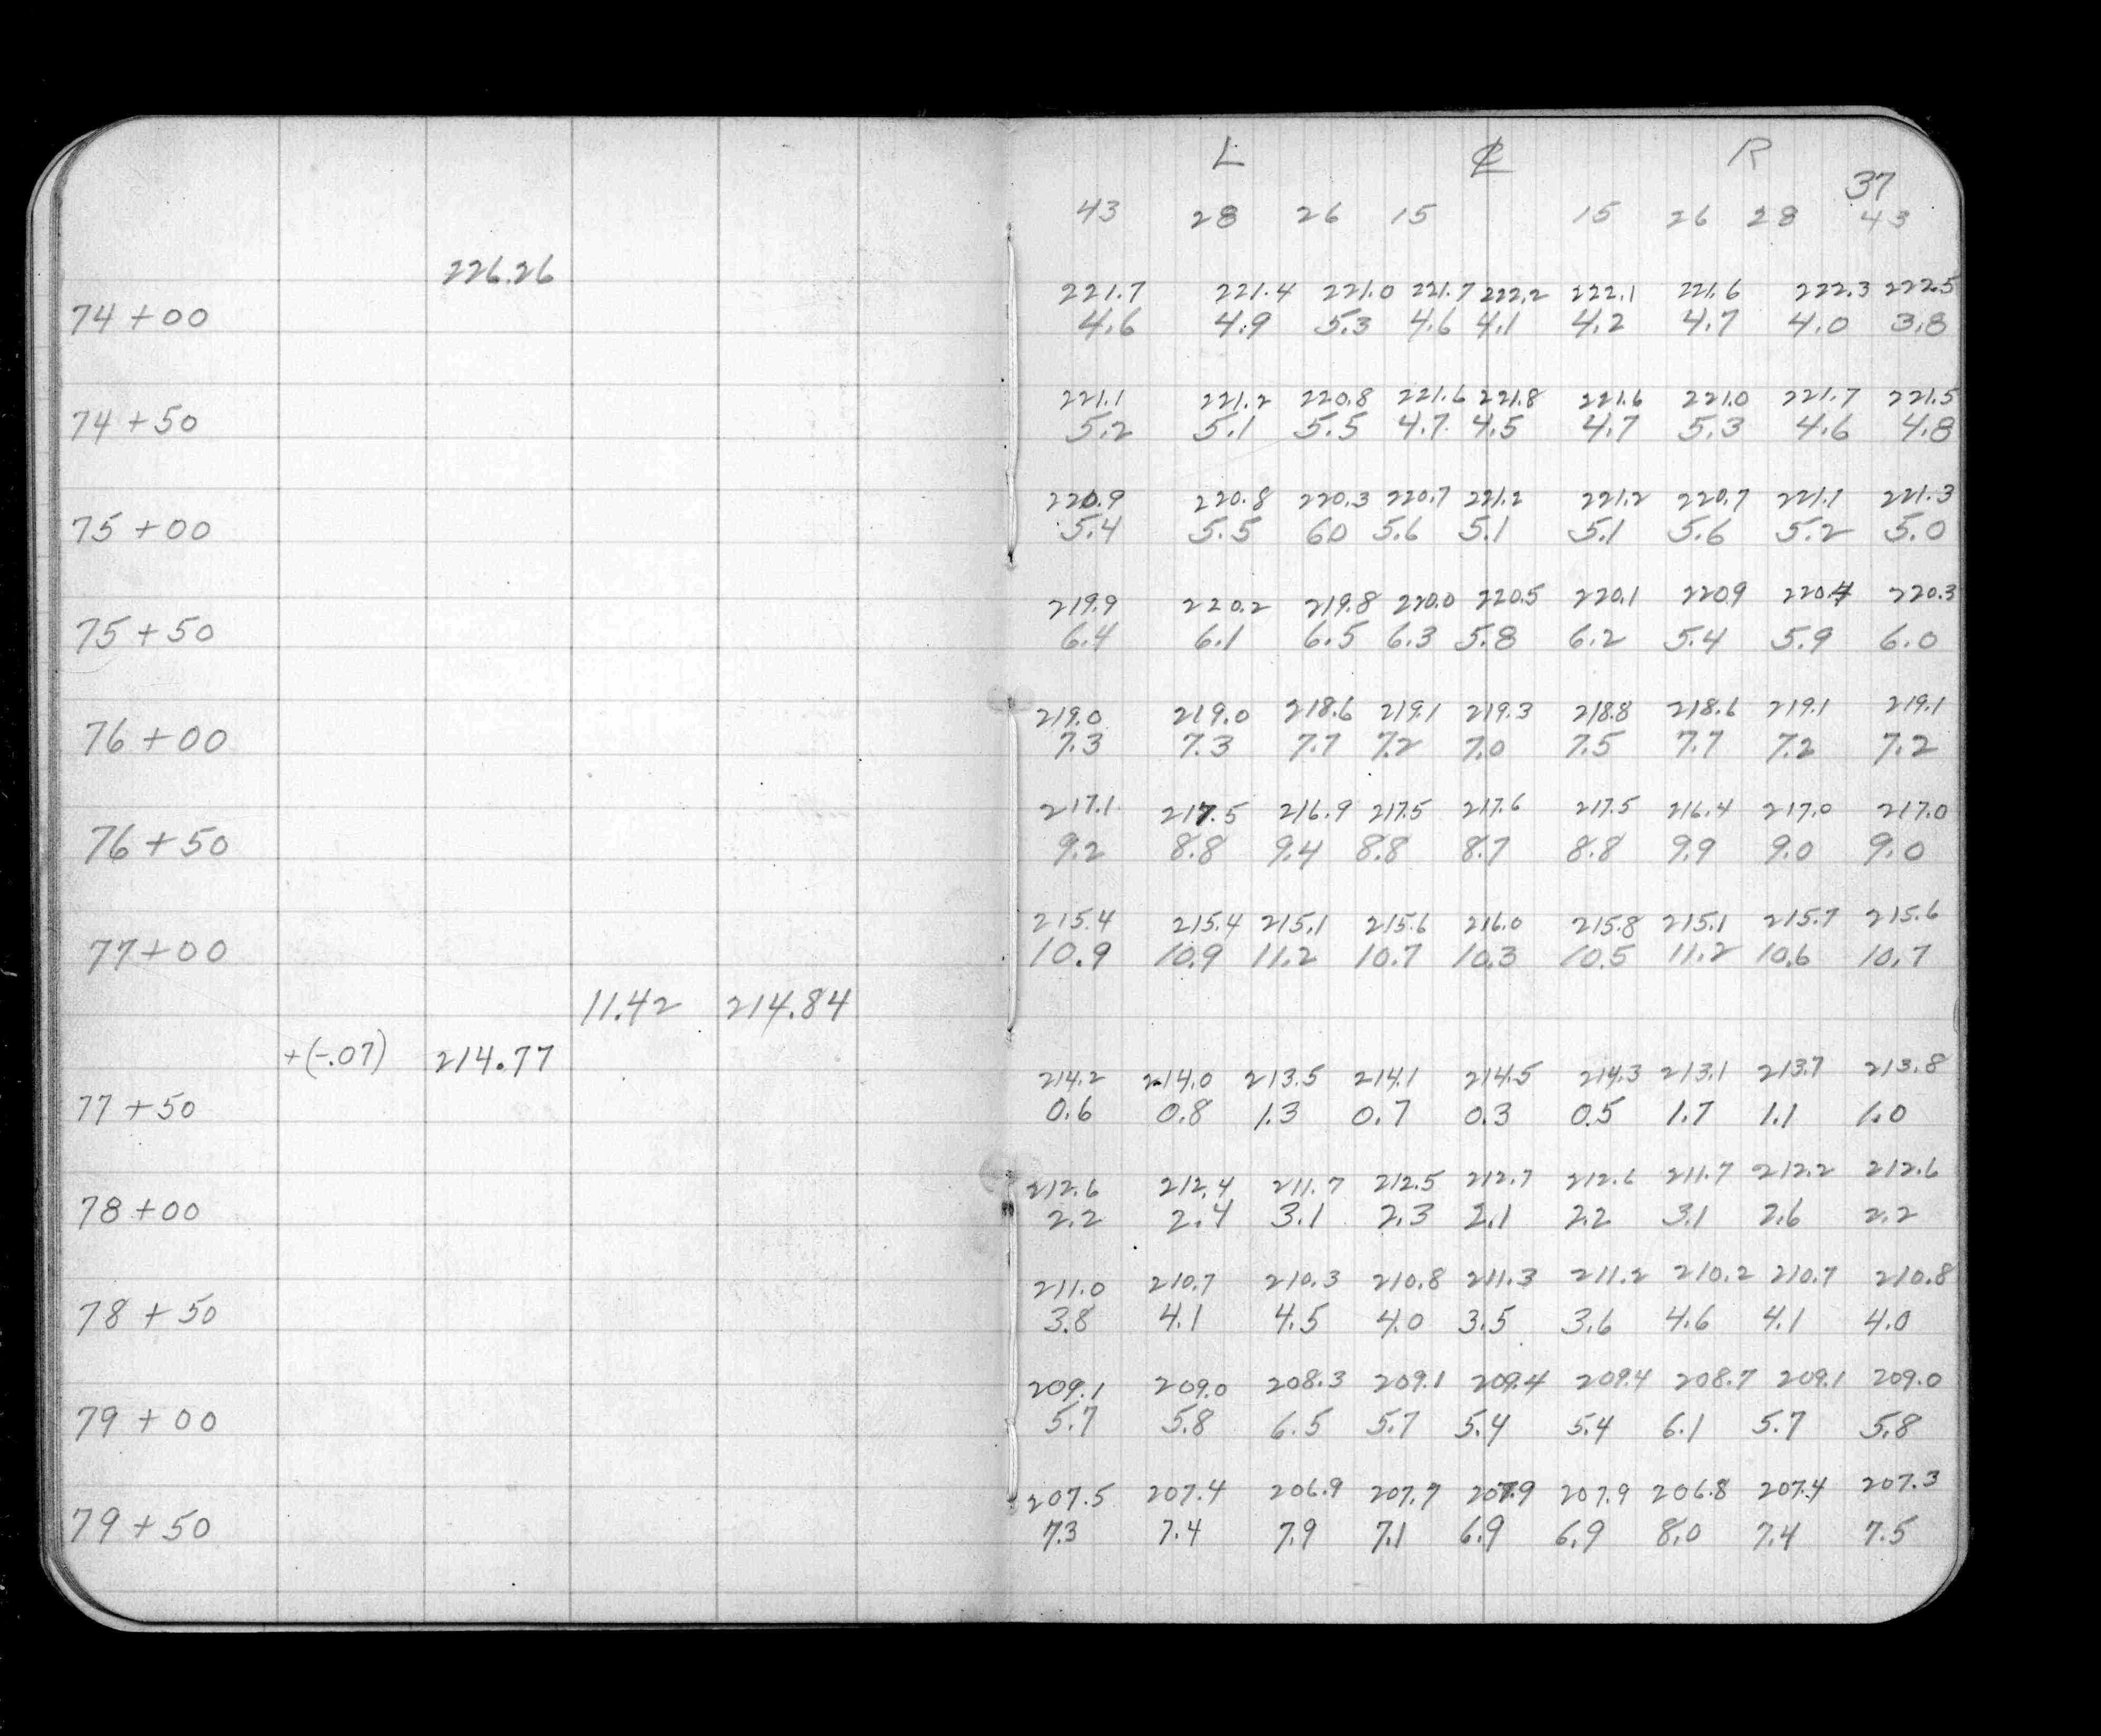 L ℄ R
37
43 28 26 15 15 26 28 43
226.26
221.7 221.4 221.0 221.7 222.2 222.1 221.6 222.3 222.5
74+00 4.6 4.9 5.3 4.6 4.1 4.2 4.7 4.0 3.8
221.1 221.2 220.8 221.6 221.8 221.6 221.0 221.7 221.5
74+50 5.2 5.1 5.5 4.7 4.5 4.7 5.3 4.6 4.8
220.9 220.8 220.3 220.7 221.2 221.2 220.7 221.1 221.3
75+00 5.4 5.5 60 5.6 5.1 5.1 5.6 5.2 5.0
219.9 220.2 219.8 220.0 220.5 220.1 220.9 220.4 220.3
75+50 6.4 6.1 6.5 6.3 5.8 6.2 5.4 5.9 6.0
219.0 219.0 218.6 219.1 219.3 218.8 218.6 219.1 219.1
76+00 7.3 7.3 7.7 7.2 7.0 7.5 7.7 7.2 7.2
217.1 217.5 216.9 217.5 217.6 217.5 216.4 217.0 217.0
76+50 9.2 8.8 9.4 8.8 8.7 8.8 9.9 9.0 9.0
215.4 215.4 215.1 215.6 216.0 215.8 215.1 215.7 215.6
77+00 10.9 10.9 11.2 10.7 10.3 10.5 11.2 10.6 10.7
11.42 214.84
+(-.07) 214.77
214.2 214.0 213.5 214.1 214.5 214.3 213.1 213.7 213.8
77+50 0.6 0.8 1.3 0.7 0.3 0.5 1.7 1.1 1.0
212.6 212.4 211.7 212.5 212.7 212.6 211.7 212.2 212.6
78+00 2.2 2.4 3.1 2.3 2.1 2.2 3.1 2.6 2.2
211.0 210.7 210.3 210.8 211.3 211.2 210.2 210.7 210.8
78+50 3.8 4.1 4.5 4.0 3.5 3.6 4.6 4.1 4.0
209.1 209.0 208.3 209.1 209.4 209.4 208.7 209.1 209.0
79+00 5.7 5.8 6.5 5.7 5.4 5.4 6.1 5.7 5.8
207.5 207.4 206.9 207.7 207.9 207.9 206.8 207.4 207.3
79+50 7.3 7.4 7.9 7.1 6.9 6.9 8.0 7.4 7.5